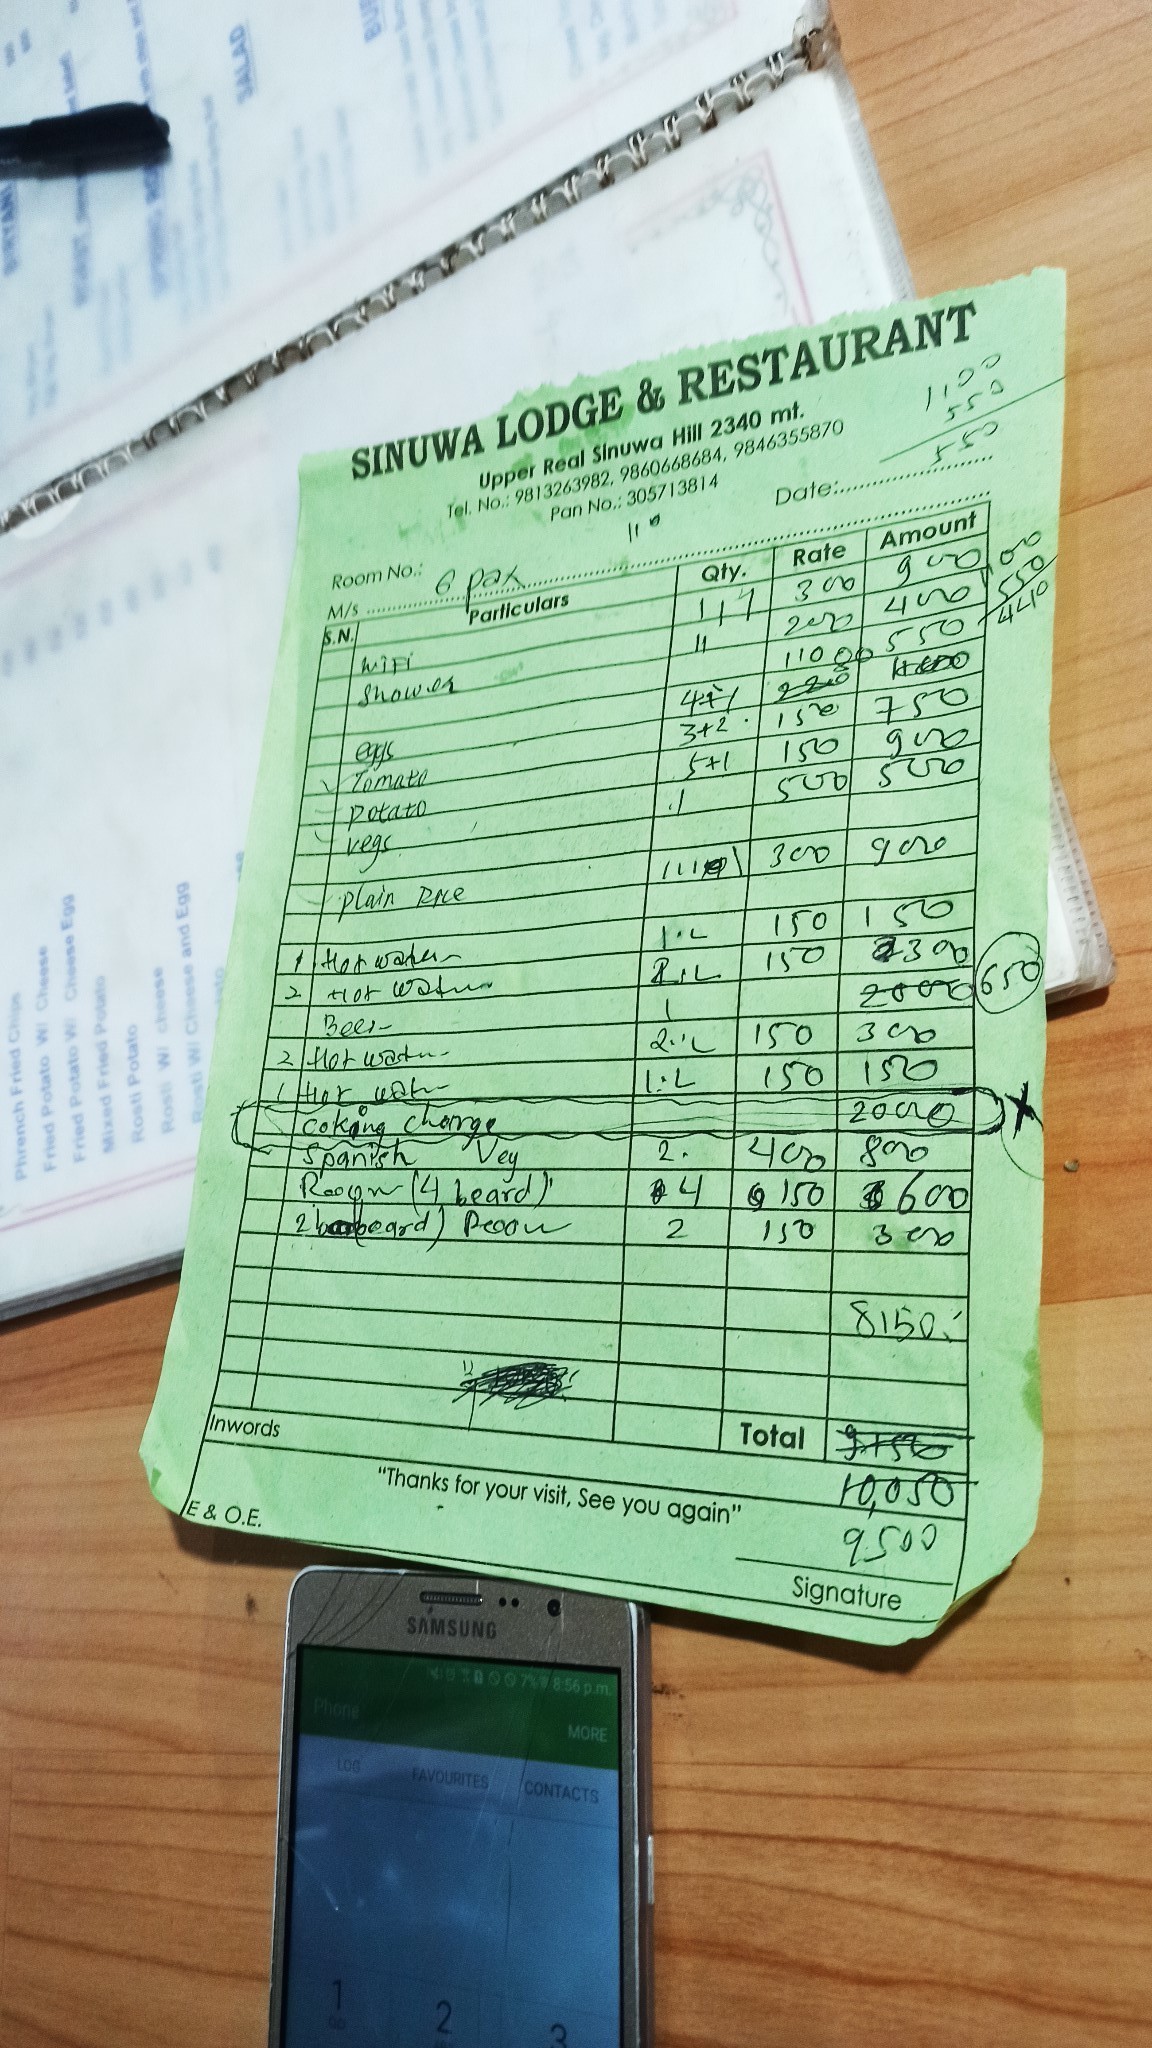 SALAD
SINUWA LODGE & RESTAURANT
Upper Real Sinuwa Hill 2340 mt.
Tel. No.: 9813263982, 9860668684, 9846355870
Pan No.: 305713814
1100
550
550
Date:
110
Room No.:
M/s 6 pax
S.N. Particulars Qty. Rate Amount
WiFi 111 300 900
Shower 11 200 400
1100 550
550
440
eggs 4+1
Tomato 3+2 150 750
potato 5+1 150 900
vegs 1 500 500
plain Rice 300 900
1 Hot water 1.L 150 150
2 Hot water 2.L 150 300
Beer 1 2000 650
2 Hot water 2.L 150 300
1 Hot water 1.L 150 150
coking charge 2000 X
Spanish Vey 2. 400 800
Room (4 beard) 4 150 600
2 beard) Room 2 150 300
8150
Inwords Total
10,050
"Thanks for your visit, See you again"
9500
E & O.E.
Signature
Phrench Fried Chips
Fried Potato W/ Cheese
Fried Potato W/ Cheese Egg
Mixed Fried Potato
Rosti Potato
Rosti W/ cheese
Rosti W/ Cheese and Egg
SAMSUNG
7% 8:56 p.m.
Phone
MORE
LOG FAVOURITES CONTACTS
1 2 3